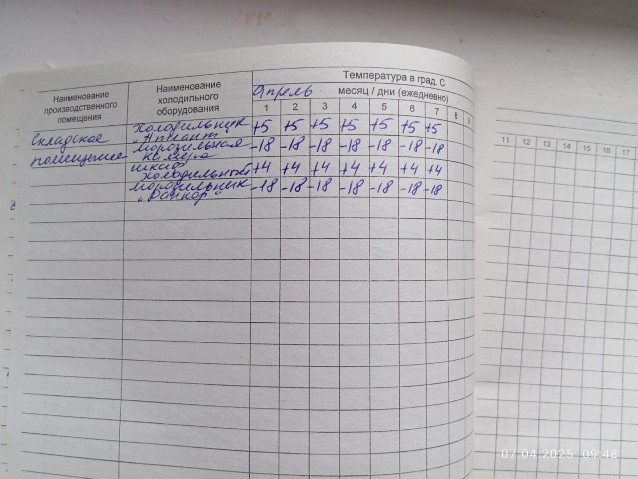 Температура в град. С
Наименование производственного помещения
Наименование холодильного оборудования
Апрель месяц / дни (ежедневно)
1 2 3 4 5 6 7 8 9
11 12 13 14 15 16 17
Складское помещение
Холодильник "Атлант" +5 +5 +5 +5 +5 +5 +5
морозильная камера -18 -18 -18 -18 -18 -18 -18
шкаф холодильный +4 +4 +4 +4 +4 +4 +4
морозильник -18 -18 -18 -18 -18 -18 -18
07.04.2025 09:48